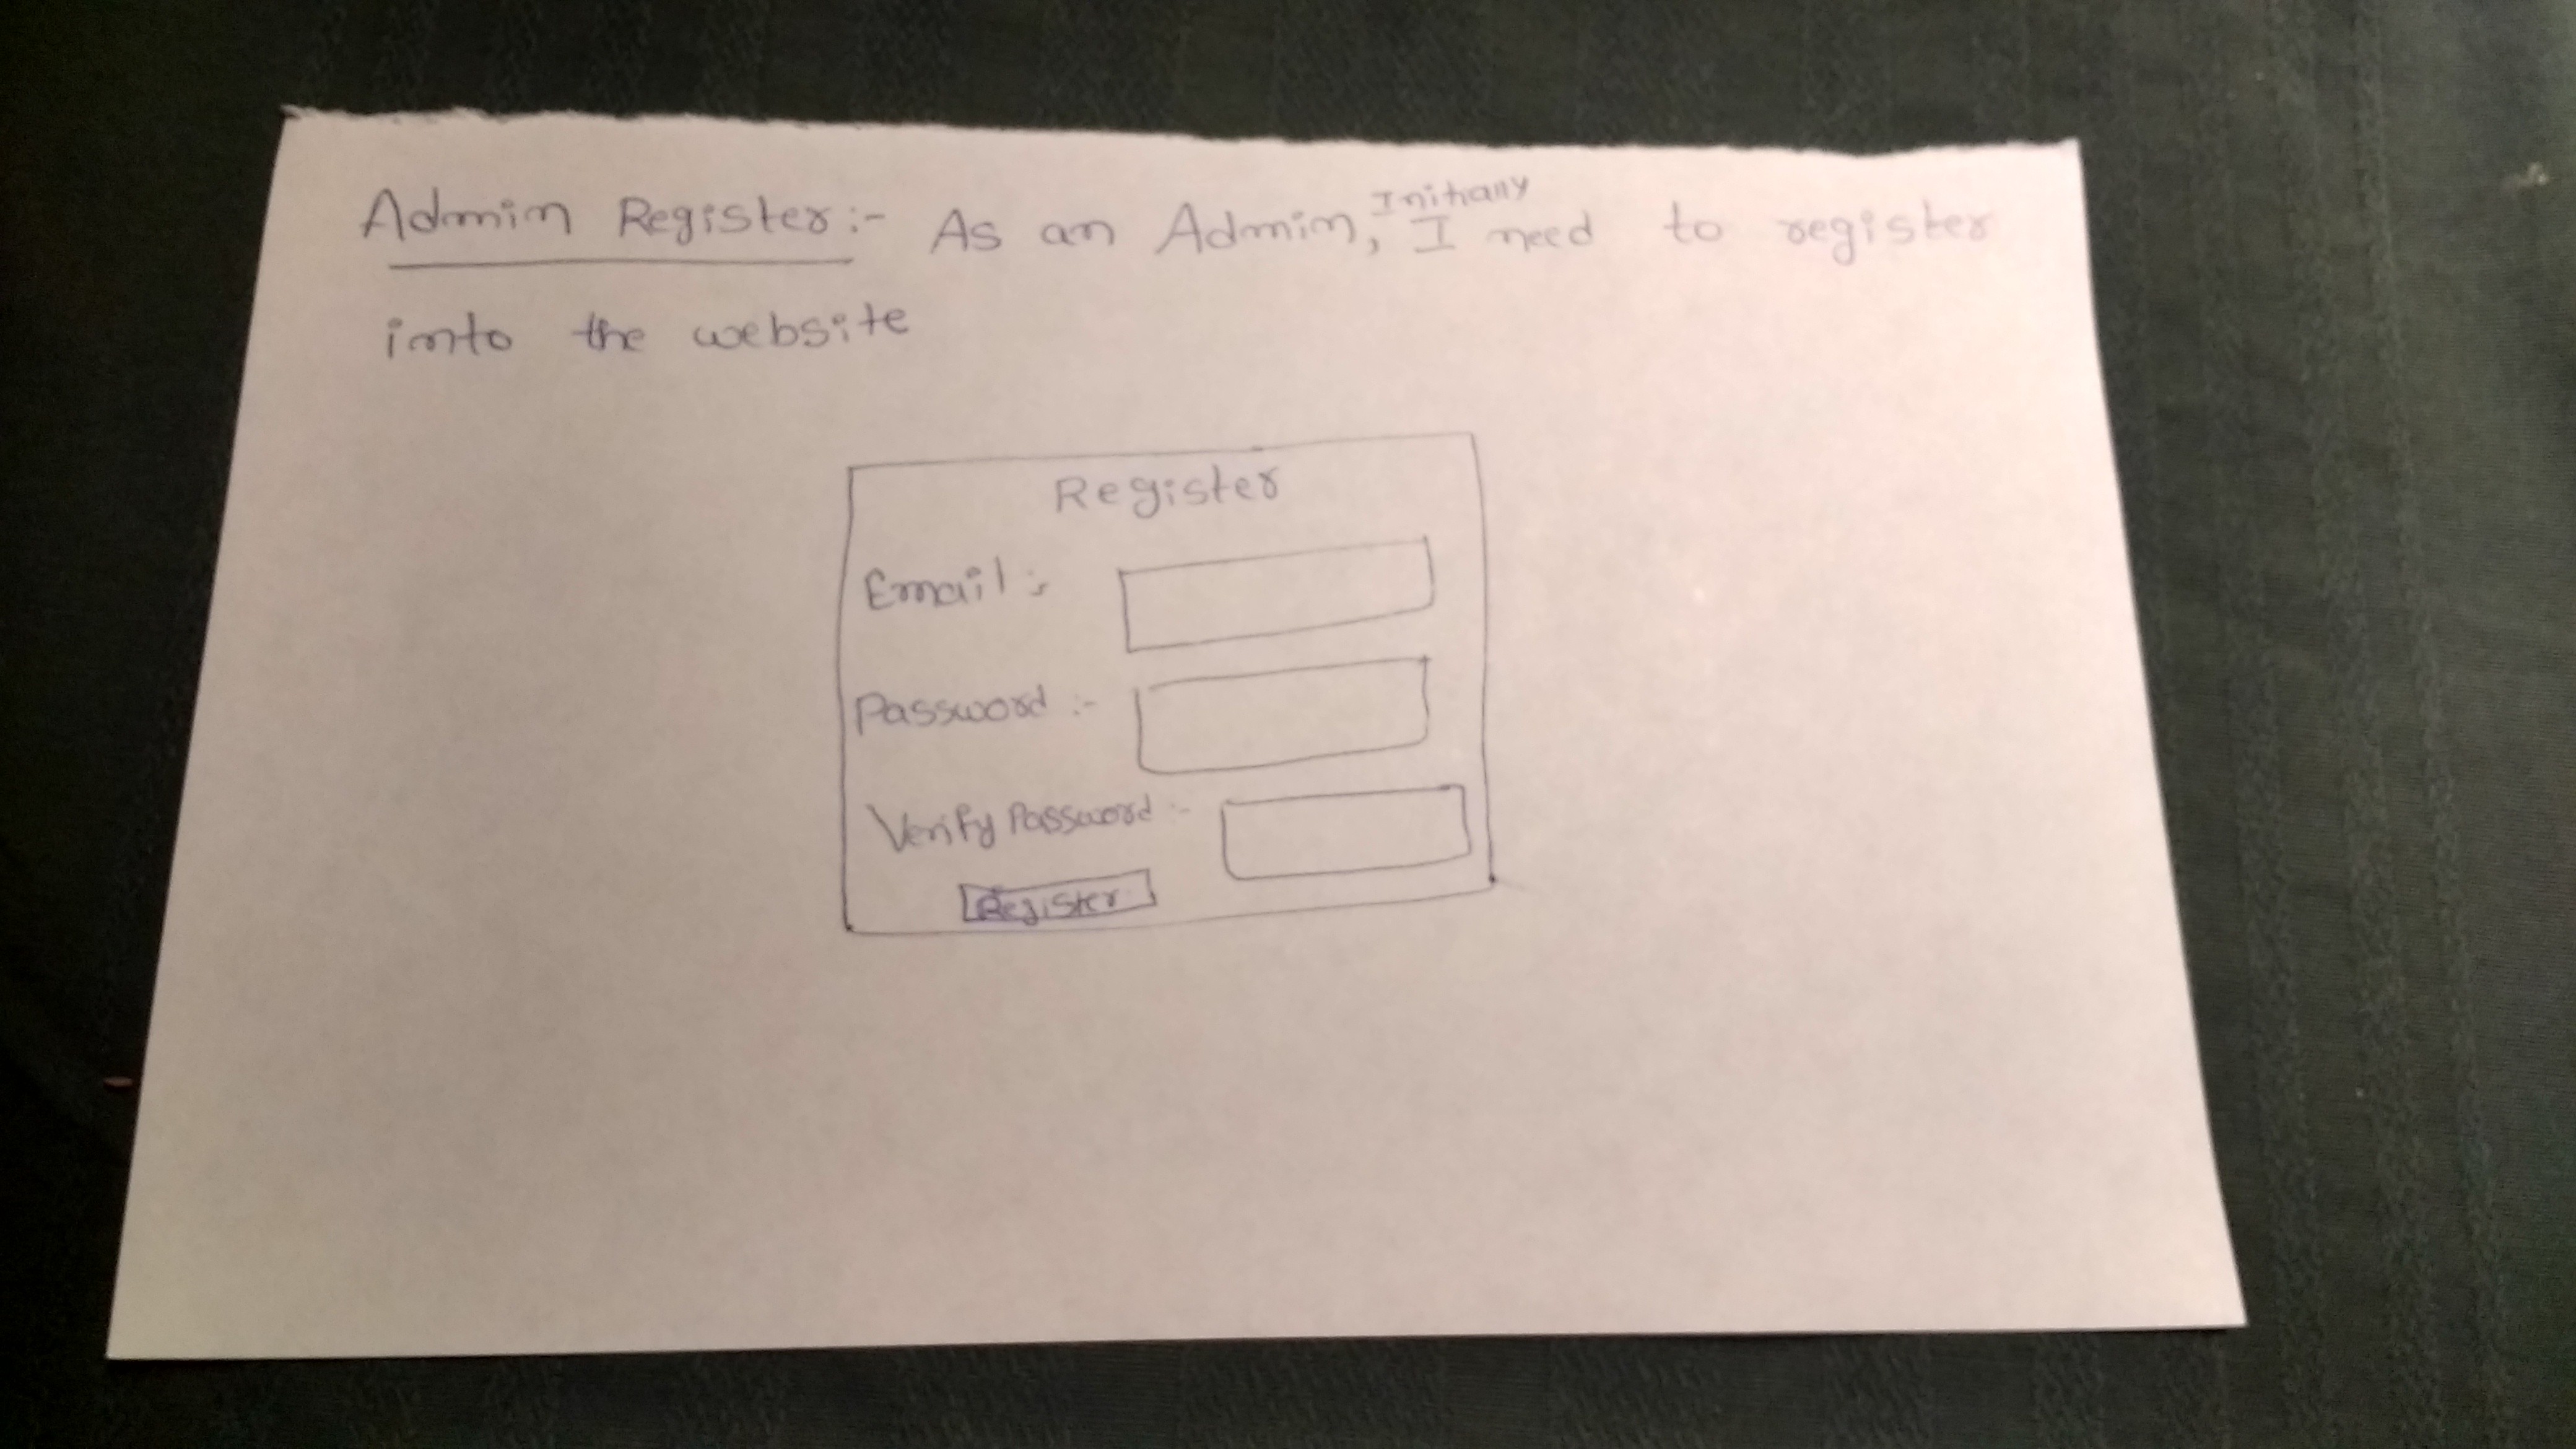 Admin Register:- As an Admin, Initially I need to register
into the website
Register
Email :-
Password :-
Verify Password :-
Register